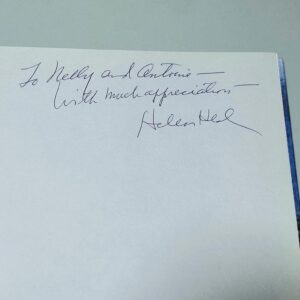 To Nelly and Antoine —
with much appreciation —
Helen